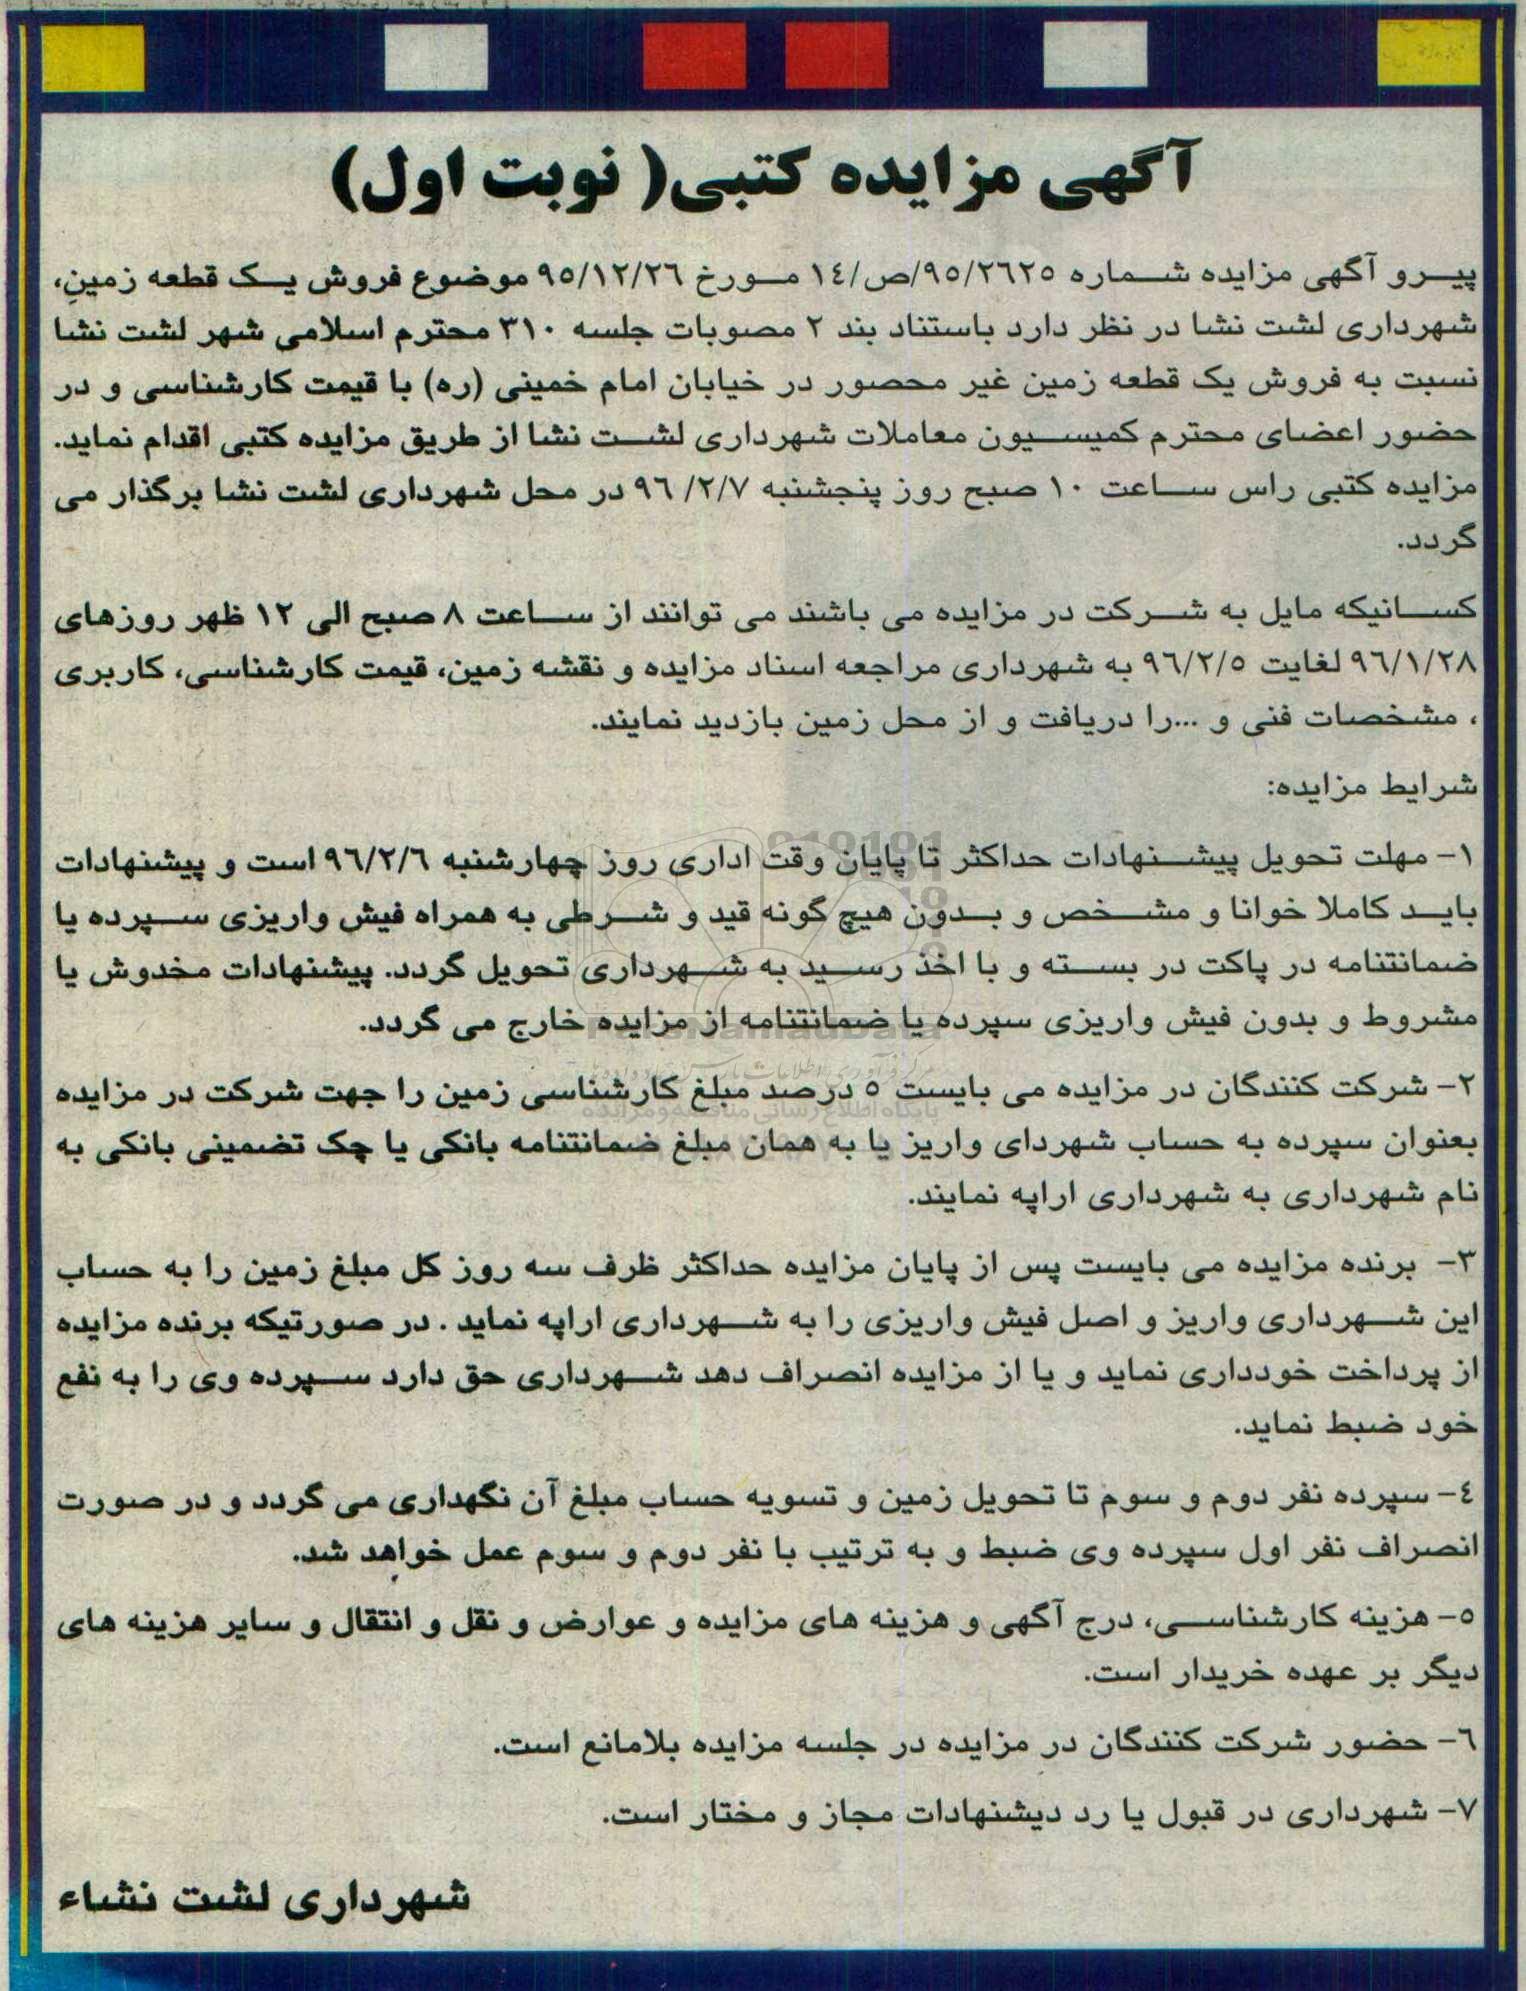 آگهی مزایده کتبی( نوبت اول)
پیرو آگهی مزایده شماره ۹۵/۲۶۲۵/ص/۱۴ مورخ ۹۵/۱۲/۲۶ موضوع فروش یک قطعه زمین،
شهرداری لشت نشا در نظر دارد باستناد بند ۲ مصوبات جلسه ۳۱۰ محترم اسلامی شهر لشت نشا
نسبت به فروش یک قطعه زمین غیر محصور در خیابان امام خمینی (ره) با قیمت کارشناسی و در
حضور اعضای محترم کمیسیون معاملات شهرداری لشت نشا از طریق مزایده کتبی اقدام نماید.
مزایده کتبی راس ساعت ۱۰ صبح روز پنجشنبه ۹۶/۲/۷ در محل شهرداری لشت نشا برگذار می
گردد.
کسانیکه مایل به شرکت در مزایده می باشند می توانند از ساعت ۸ صبح الی ۱۲ ظهر روزهای
۹۶/۱/۲۸ لغایت ۹۶/۲/۵ به شهرداری مراجعه اسناد مزایده و نقشه زمین، قیمت کارشناسی، کاربری
، مشخصات فنی و ...را دریافت و از محل زمین بازدید نمایند.
شرایط مزایده:
۱- مهلت تحویل پیشنهادات حداکثر تا پایان وقت اداری روز چهارشنبه ۹۶/۲/۶ است و پیشنهادات
باید کاملا خوانا و مشخص و بدون هیچ گونه قید و شرطی به همراه فیش واریزی سپرده یا
ضمانتنامه در پاکت در بسته و با اخذ رسید به شهرداری تحویل گردد. پیشنهادات مخدوش یا
مشروط و بدون فیش واریزی سپرده یا ضمانتنامه از مزایده خارج می گردد.
۲- شرکت کنندگان در مزایده می بایست ۵ درصد مبلغ کارشناسی زمین را جهت شرکت در مزایده
بعنوان سپرده به حساب شهردای واریز یا به همان مبلغ ضمانتنامه بانکی یا چک تضمینی بانکی به
نام شهرداری به شهرداری ارایه نمایند.
۳- برنده مزایده می بایست پس از پایان مزایده حداکثر ظرف سه روز کل مبلغ زمین را به حساب
این شهرداری واریز و اصل فیش واریزی را به شهرداری ارایه نماید . در صورتیکه برنده مزایده
از پرداخت خودداری نماید و یا از مزایده انصراف دهد شهرداری حق دارد سپرده وی را به نفع
خود ضبط نماید.
۴- سپرده نفر دوم و سوم تا تحویل زمین و تسویه حساب مبلغ آن نگهداری می گردد و در صورت
انصراف نفر اول سپرده وی ضبط و به ترتیب با نفر دوم و سوم عمل خواهد شد.
۵- هزینه کارشناسی، درج آگهی و هزینه های مزایده و عوارض و نقل و انتقال و سایر هزینه های
دیگر بر عهده خریدار است.
۶- حضور شرکت کنندگان در مزایده در جلسه مزایده بلامانع است.
۷- شهرداری در قبول یا رد دیشنهادات مجاز و مختار است.
شهرداری لشت نشاء